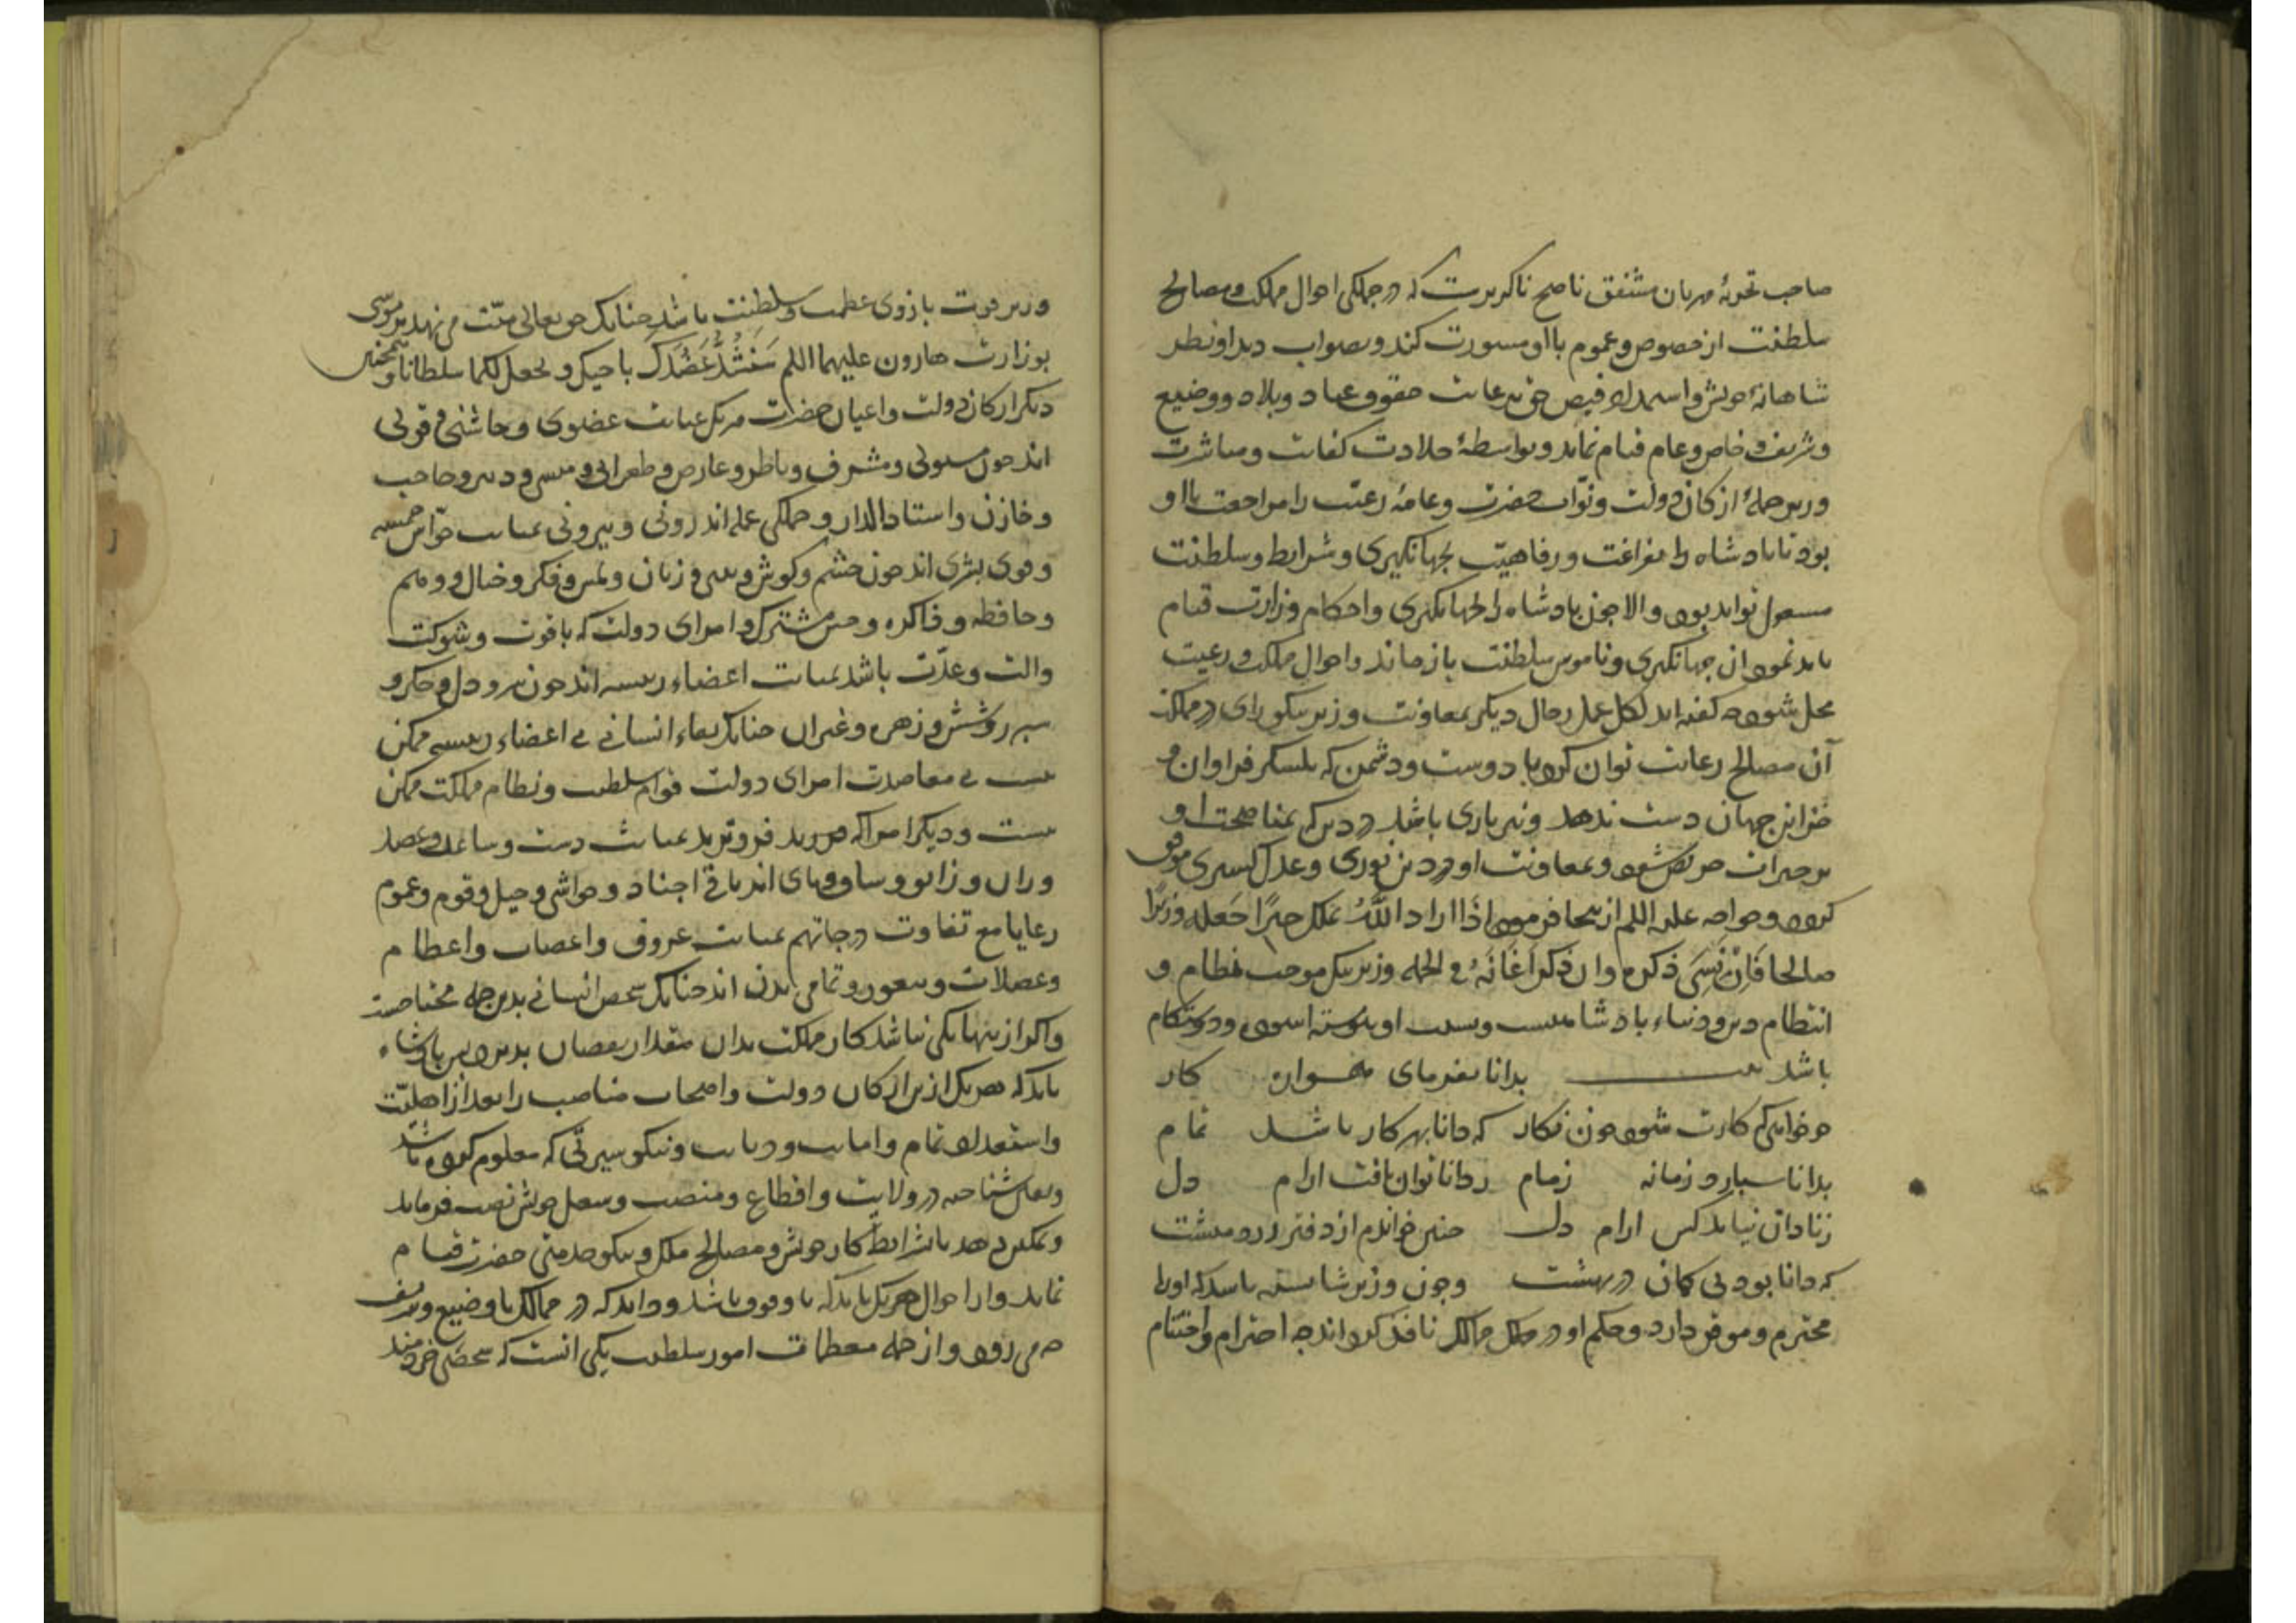 صاحب تجربهٔ مهربان مشفق ناصح ناگزیرست که در جملگی احوال مملکت و مصالح
سلطنت از خصوص و عموم با او مشورت کند و بصواب دید او نظر
شاهانهٔ خویش و استمداد فیض حق برعایت حقوق عباد و بلاد و وضیع
و شریف و خاص و عام قیام نماید و بواسطهٔ جلادت کفایت و مباشرت
وزیر جملهٔ ارکان دولت و نوّاب حضرت و عامهٔ رعیّت را مراجعت با او
بود تا پادشاه را بفراغت و رفاهیّت بجهانگیری و شرایط و سلطنت
مشغول تواند بود و الا چون پادشاه را بجهانگیری و احکام وزارت قیام
باید نمود از جهانگیری و ناموس سلطنت باز ماند و احوال مملکت و رعیت
مختل شود که گفته اند لکل عمل رجال دیگر بمعاونت وزیر نیکو رای در مملکت
آن مصالح رعایت توان کرد با دوست و دشمن که بلشکر فراوان و
خزاین جهان دست ندهد و نیز یاری باشد در دین که بمناصحت او
بر خیرات حریص شود و بمعاونت او در دین پروری و عدل گستری موفق
گردد و خواجه علیه السلم ازینجا فرمود اذا اراد اللّٰه بملک خیرًا جعل له وزیرًا
صالحا فان نسی ذکره وان ذکر اعانه فی الجمله وزیر نیک موجب نظام و
انتظام دین و دنیاء پادشاهست و بسبب او پیوسته آسوده و دوستکام
باشد بیت بدانا بفرمای همواره کار
چو خواهی که کارت شود چون نگار که دانا بهر کار باشد تمام
بدانا سپارد زمانه زمام ز دانا توان یافت ارام دل
ز نادان نیابد کس ارام دل چنین خواندم از دفتر زردهشت
که دانا بود بی گمان در بهشت و چون وزیر شایسته باشد که او را
محترم و موقر دارد و حکم او در کل ممالک نافذ گرداند چه احترام و احتشام
وزیر قوت بازوی عظمت و سلطنت باشد چنانک حق تعالی منّت می نهد بر موسی
بوزارت هارون علیهما السلم سَنَشُدُّ عَضُدَک باخیک و نجعل لکما سلطانا و همچنین
دیگر ارکان دولت و اعیان حضرت هر یک بمثابت عضوی و حاستی و قوتی
اند چون مستوفی و مشرف و ناظر و عارض و طغرایی و منشی و دبیر و حاجب
و خازن و استاد الدار و جملگی عمله اندرونی و بیرونی بمثابت حواس خمسه
و قوی بشری اند چون چشم و گوش و بینی و زبان و لمس و فکر و خیال و وهم
و حافظه و ذاکره و حس مشترک و امرای دولت که با قوت و شوکت
و الت و عدّت باشد بمثابت اعضاء رئیسه اند چون سر و دل و جگر و
سپرز و شش و زهره و غیر آن چنانک بقاء انسانی بی اعضاء رئیسه ممکن
نیست بی معاضدت امرای دولت قوام سلطنت و نظام مملکت ممکن
نیست و دیگر امرا که مرتبه فروترند بمثابت دست و ساعد و عضد
و ران و زانو و ساق و پای اند باقی اجناد و حواشی و خیل و قوم و عموم
رعایا مع تفاوت درجاتهم بمثابت عروق و اعصاب و اعظام
و عضلات و شعور و تمامی بدن اند چنانک شخص انسانی بدین جمله محتاجست
و اگر از ینها یکی نباشد کار مملکت بدان مقدار نقصان پذیرد پس پادشاه
باید که هر یک از ین ارکان دولت و اصحاب مناصب را بعد از اهلیّت
و استعداد تمام و امانت و دیانت و نیکو سیرتی که معلوم کرده باشد
و بعین شناخته در ولایت و اقطاع و منصب و شغل خویش نصب فرماید
و تمکین دهد تا بشرایط کار خویش و مصالح ملک و نیکو خدمتی حضرت قیام
نماید و از احوال هر یک باید که با وقوف باشد و داند که در ممالک با وضیع و شریف
چه می رود و از جمله معظمات امور سلطنت یکی انست که شخصی خردمند